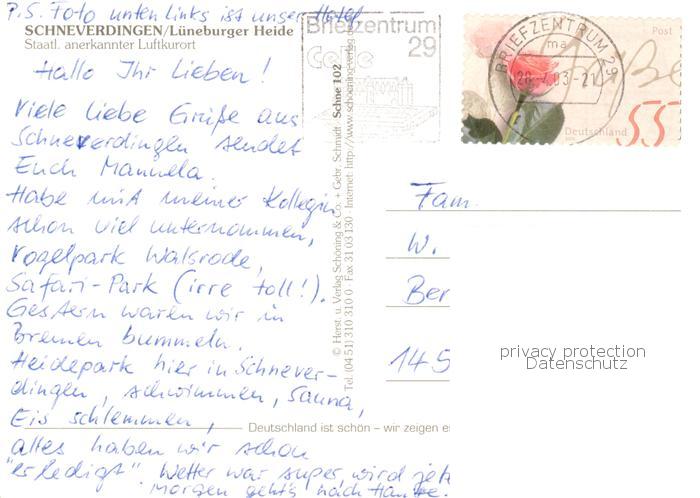 P.S. Foto unten links ist unser Hotel
SCHNEVERDINGEN/Lüneburger Heide
Staatl. anerkannter Luftkurort
Hallo Ihr Lieben!
Viele Liebe Grüße aus
Schneverdingen sendet
Euch Manuela.
Habe mit meiner Kollegin
schon viel unternommen,
Vogelpark Walsrode,
Safari-Park (irre toll!).
Gestern waren wir in
Bremen bummeln.
Heidepark hier in Schnever-
dingen, schwimmen, Sauna,
Eis schlemmen,
alles haben wir schon
"erledigt". Wetter war super, wird jetz
Morgen geht's nach Hause.
© Herst. u. Verlag Schöning & Co. + Gebr. Schmidt · Schne 102
Tel. (04 51) 310 310 0 Fax 31 03 130 · Internet: http://www.schoening-verlag
Deutschland ist schön – wir zeigen es
Briefzentrum
29
Celle
BRIEFZENTRUM 29
ma
28.-7.03-21
Post
Deutschland
55
Fam.
W.
Ber
145
privacy protection
Datenschutz